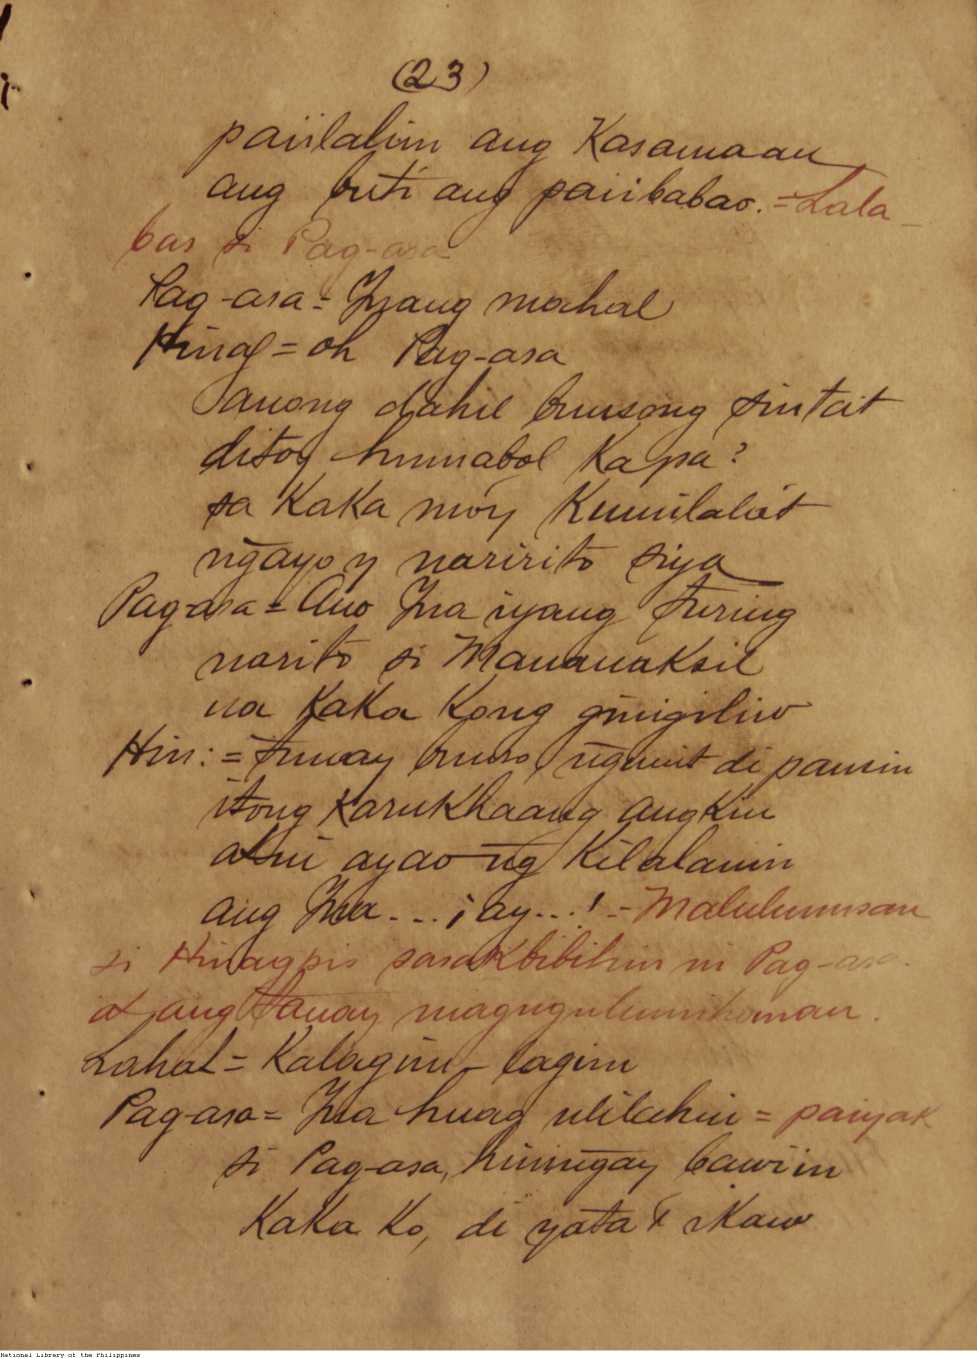 (23)
paiilalim ang Kasamaan
ang buti ang paiibabao. = Lala
bas si Pag-asa
Pag-asa = Ynang mahal
Hinag = oh Pag-asa
anong dahil bunsong sintait
ditoy humabol Ka pa?
sa KaKa moy Kumilalait
ngayo y naririto siya
Pag-asa = Ano Yna iyang turing
narito si MananaKsil
na KaKa Kong ginigiliw
Hin: = tunay bunso, nguint di pansin
itong KaruKhaang angKin
ayao ng Kilalanin
ang Yna ... ¡ ay ... ! = Malulunusan
si Hinagpis sasaKbibihin ni Pag-asa.
at ang tanan magugulumihanan.
Lahat = Kalagim - lagim
Pag-asa = Yna huag = paiyak
si Pag-asa, hiningay bawiin
KaKa Ko, di yata t iKaw
National Library of the Philippines